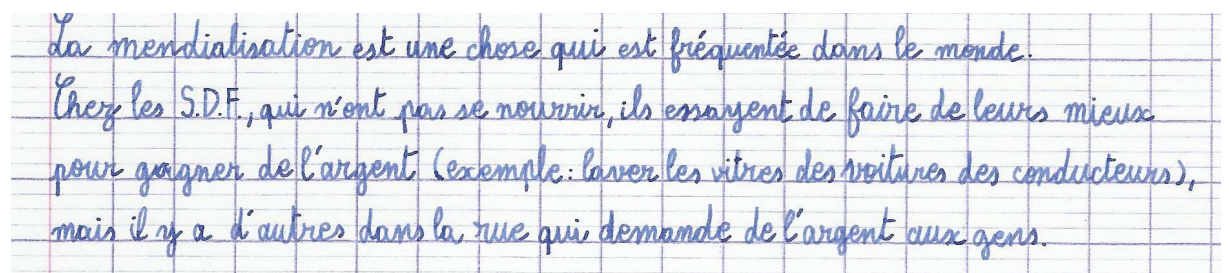 La mendialisation est une chose qui est fréquentée dans le monde.
Chez les S.D.F., qui n'ont pas se nourrir, ils essayent de faire de leurs mieux
pour gagner de l'argent (exemple: laver les vitres des voitures des conducteurs),
mais il y a d'autres dans la rue qui demande de l'argent aux gens.